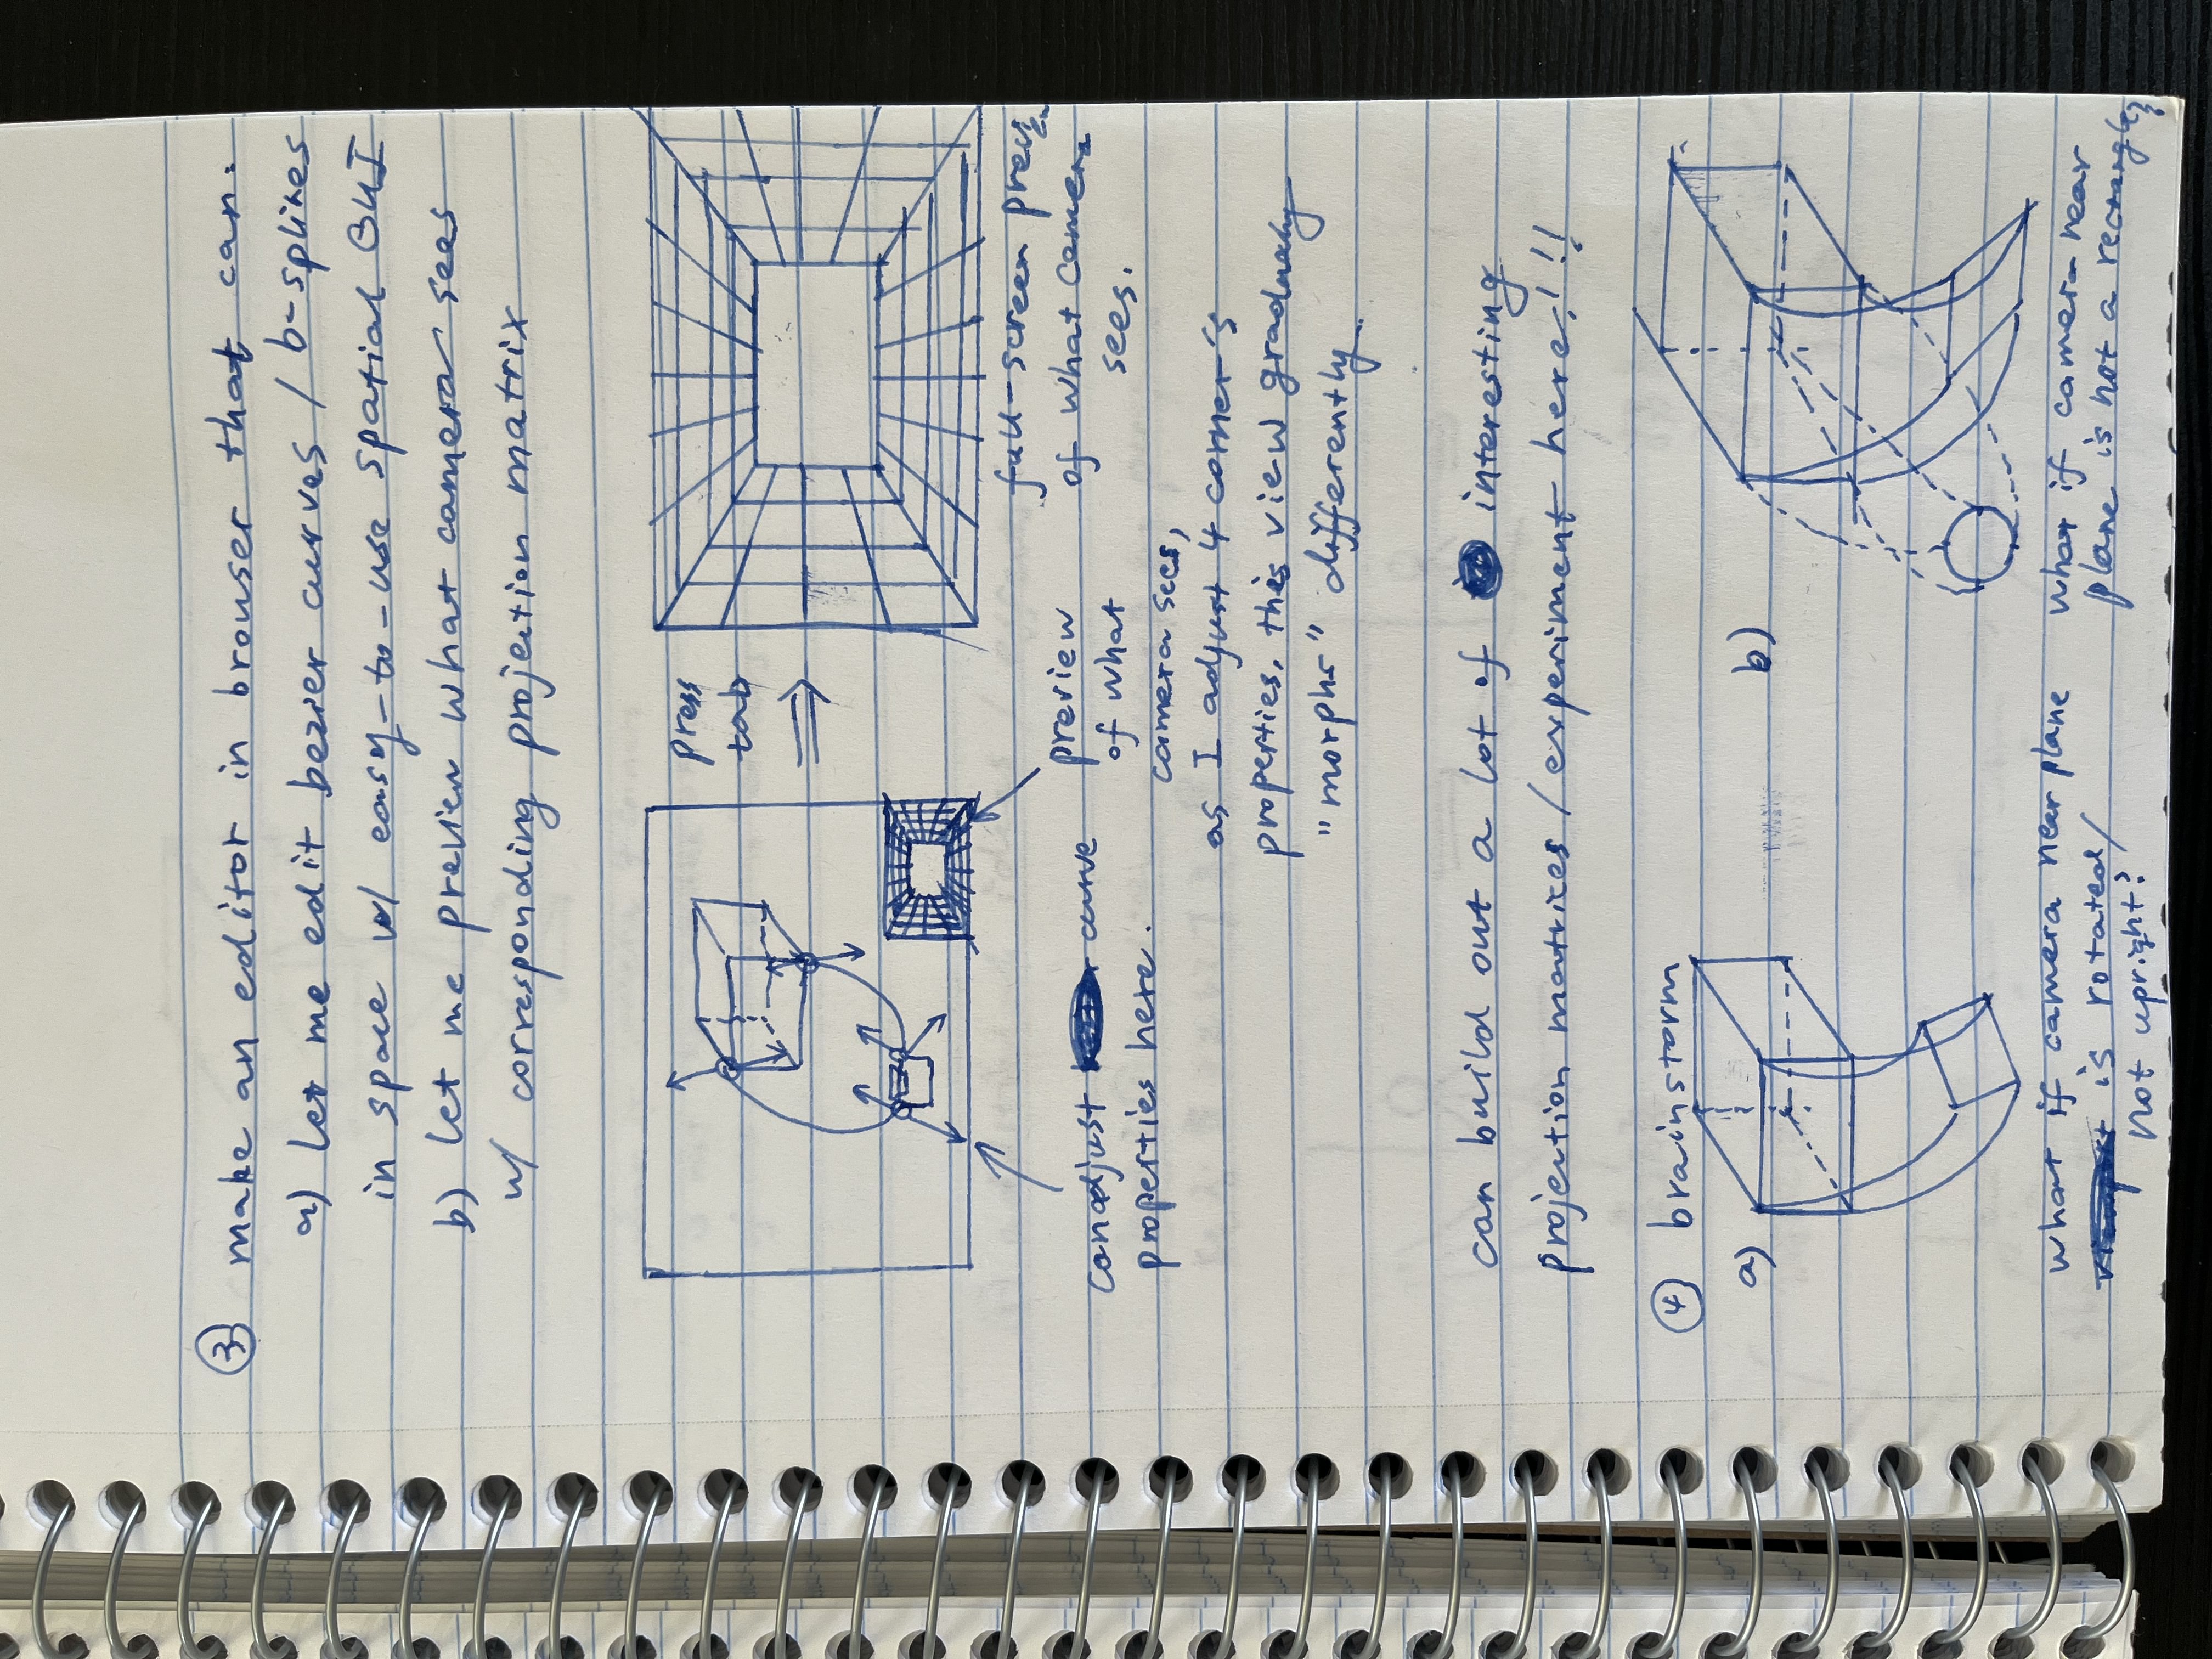 ③ make an editor in browser that can:
a) let me edit bezier curves / b-splines
in space w/ easy-to-use spatial GUI
b) let me preview what camera sees
w/ corresponding projection matrix
press
tab
can adjust curve
properties here.
preview
of what
camera sees,
as I adjust 4 corner's
properties, this view gradually
"morphs" differently
full-screen preview
of what camera
sees.
can build out a lot of interesting
projection matrices / experiment here!!!
④ brainstorm
a)
what if camera near plane
is rotated/
not upright?
b)
what if camera near
plane is not a rectangle?